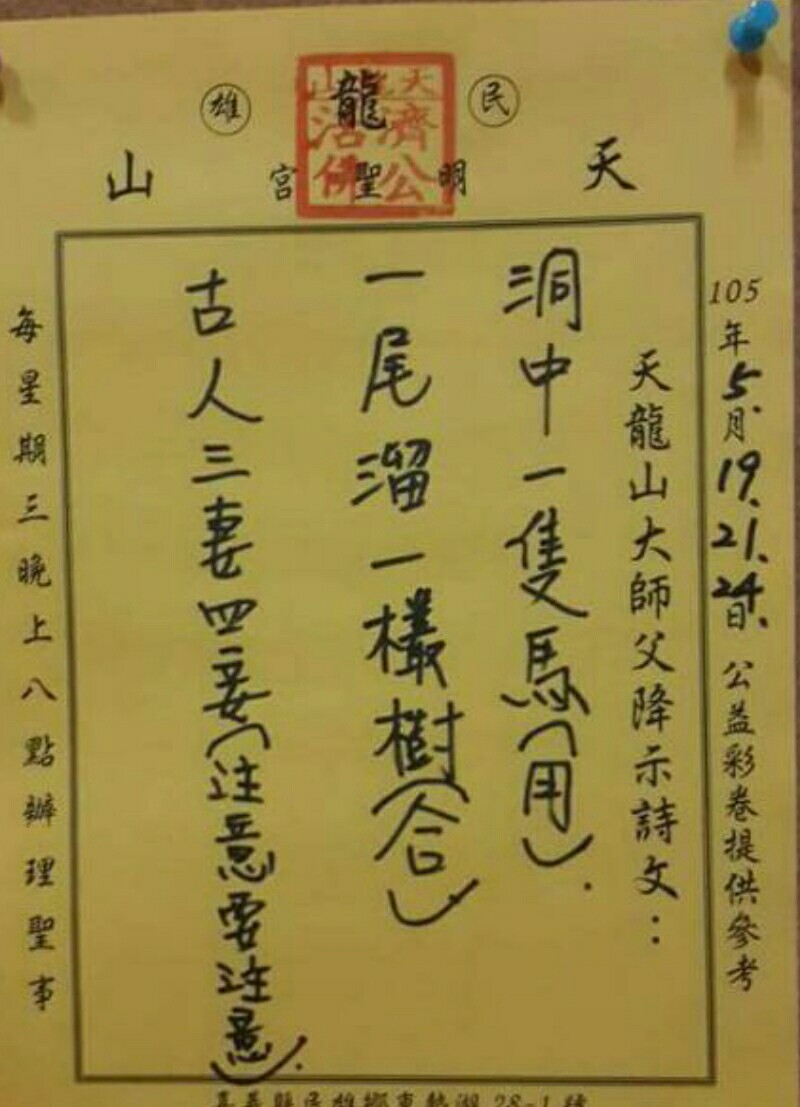 民雄
天龍山
明聖宮
天龍山
濟公
活佛
105年5.月19.21.24.日公益彩卷提供參考
天龍山大師父降示詩文：
洞中一隻馬(用).
一尾溜一欉樹(合)
古人三妻四妾(注意要注意).
每星期三晚上八點辦理聖事
嘉義縣民雄鄉東勢湖28-1號